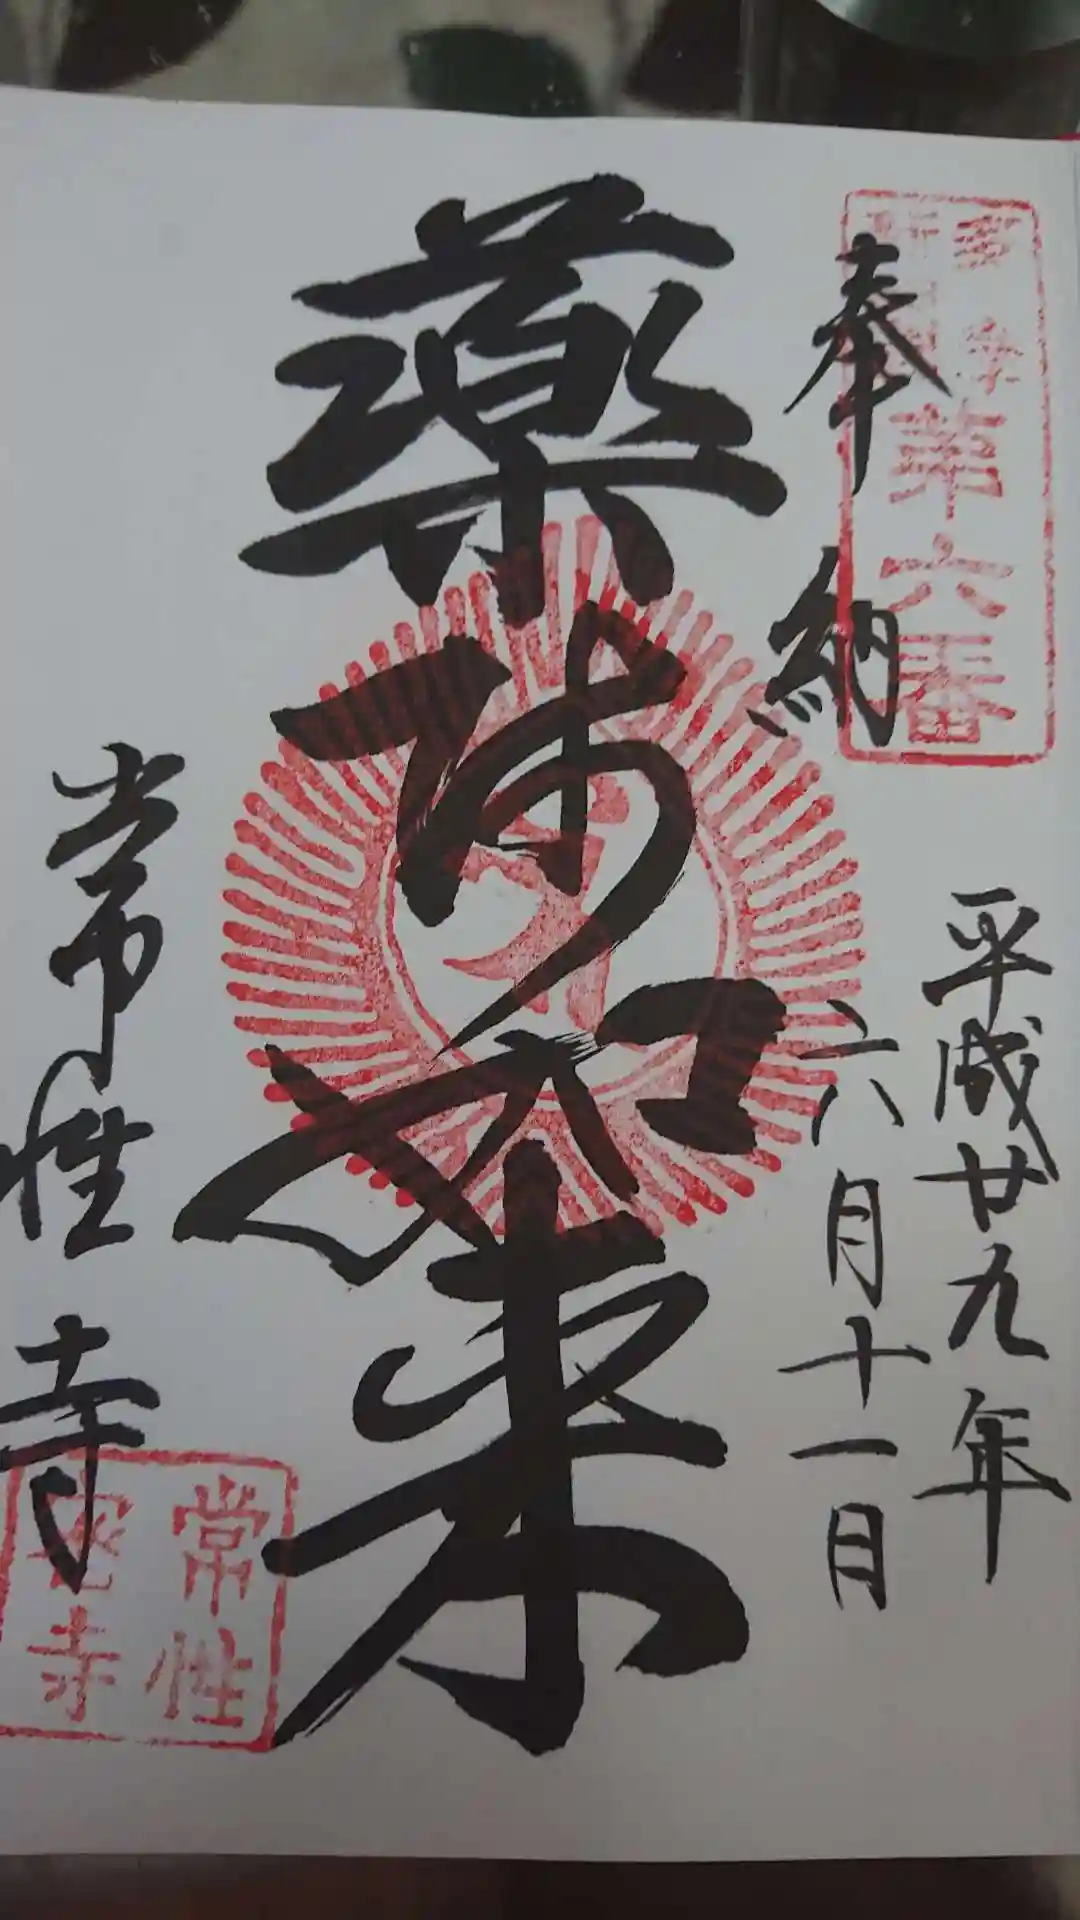 奉納
第六番
平成廿九年
六月十一日
薬師如来
常性寺
常性
寺